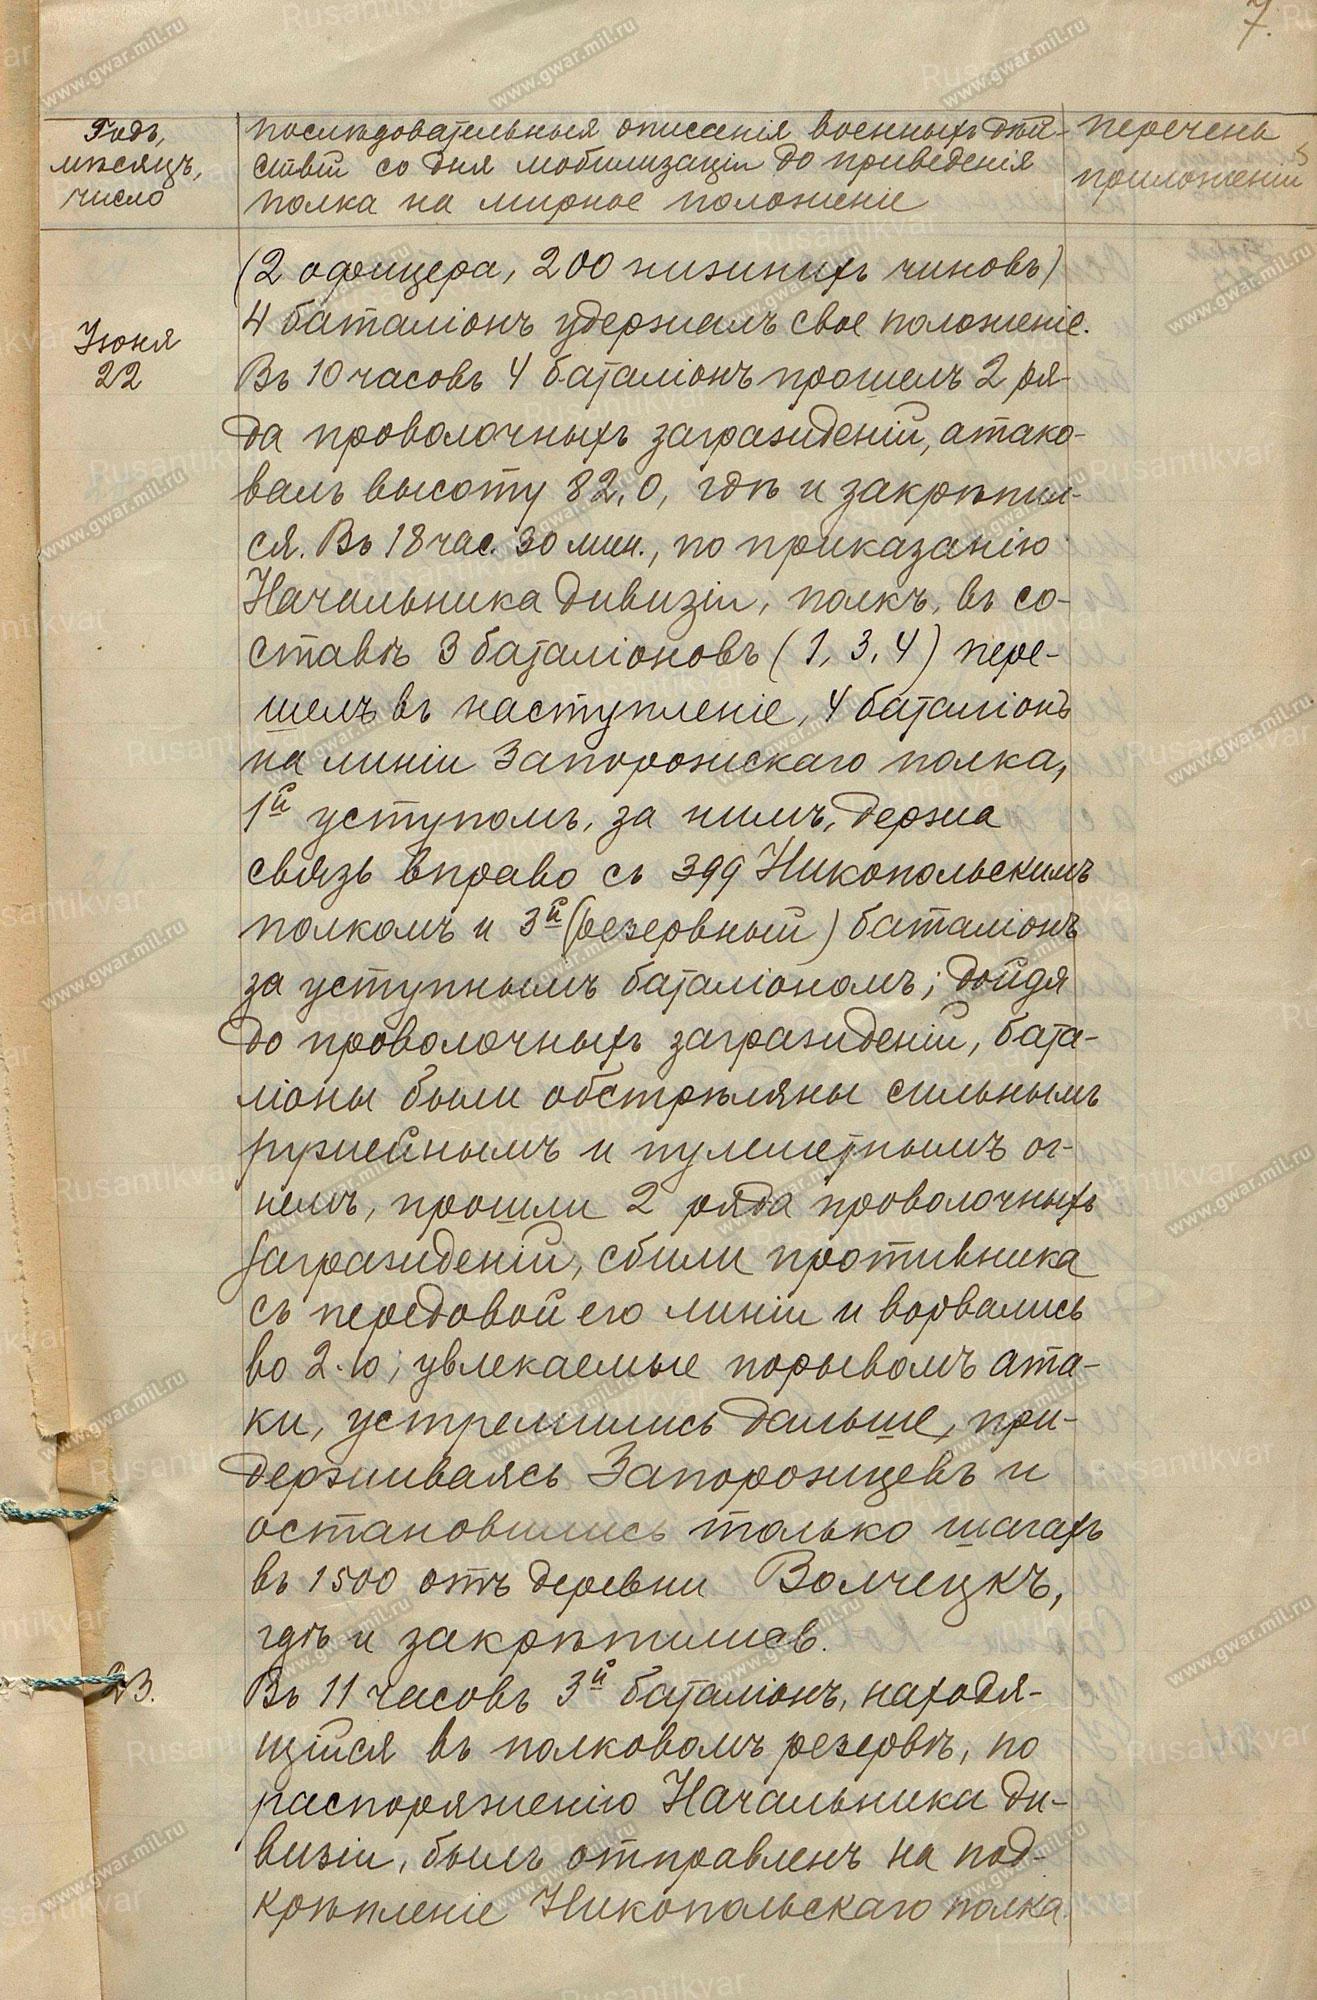 7.
Годъ,
мѣсяцъ,
число
последовательныя описанія военныхъ дѣй-
ствій со дня мобилизаціи до приведенія
полка на мирное положеніе
перечень
приложеній
(2 офицера, 200 нижнихъ чиновъ)
4 баталіонъ удержалъ свое положеніе.
Іюня
22
Въ 10 часовъ 4 баталіонъ прошелъ 2 ря-
да проволочныхъ загражденій, атако-
валъ высоту 82,0, гдѣ и закрѣпил-
ся. Въ 18 час. 30 мин., по приказанію
Начальника дивизіи, полкъ, въ со-
ставѣ 3 баталіоновъ (1, 3, 4) пере-
шелъ въ наступленіе, 4 баталіонъ
на линіи Запорожскаго полка,
1й уступомъ, за нимъ, держа
связь вправо съ 399 Никопольскимъ
полкомъ и 3й (резервный) баталіонъ
за уступнымъ баталіономъ; дойдя
до проволочныхъ загражденій, бата-
ліоны были обстрѣляны сильнымъ
ружейнымъ и пулеметнымъ ог-
немъ, прошли 2 ряда проволочныхъ
загражденій, сбили противника
съ передовой его линіи и ворвались
во 2-ю; увлекаемые порывомъ ата-
ки, устремились дальше, при-
держиваясь Запорожцевъ и
остановились только шагахъ
въ 1500 отъ деревни Волчецкъ,
гдѣ и закрѣпились.
23.
Въ 11 часовъ 3й баталіонъ, находя-
щійся въ полковомъ резервѣ, по
распоряженію Начальника ди-
визіи, былъ отправленъ на под-
крѣпленіе Никопольскаго полка